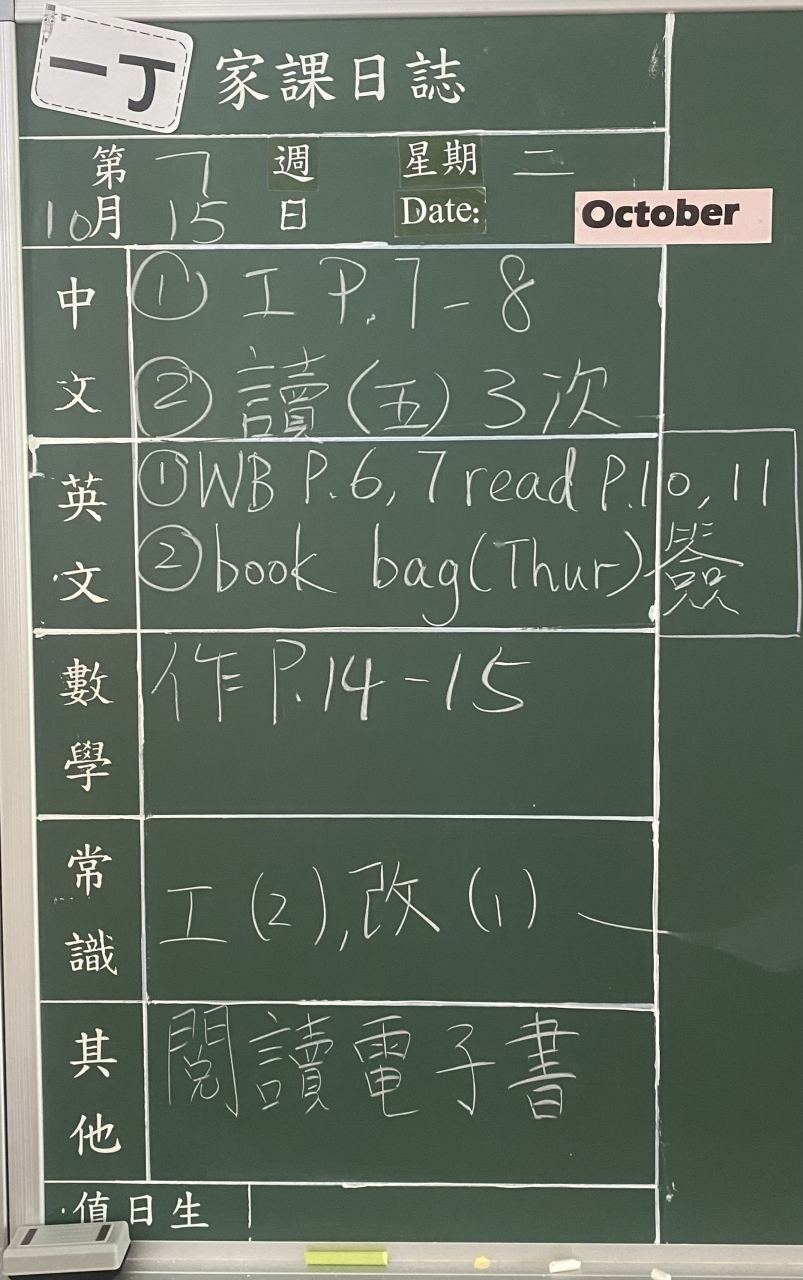 一丁 家課日誌
第 7 週 星期 二
10月 15 日 Date: October
中文
① 工 P.7-8
② 讀(五)3次
英文
① WB P.6, 7 read P.10, 11
② book bag (Thur) 簽
數學
作 P.14-15
常識
工(2), 改(1)
其他
閱讀電子書
值日生